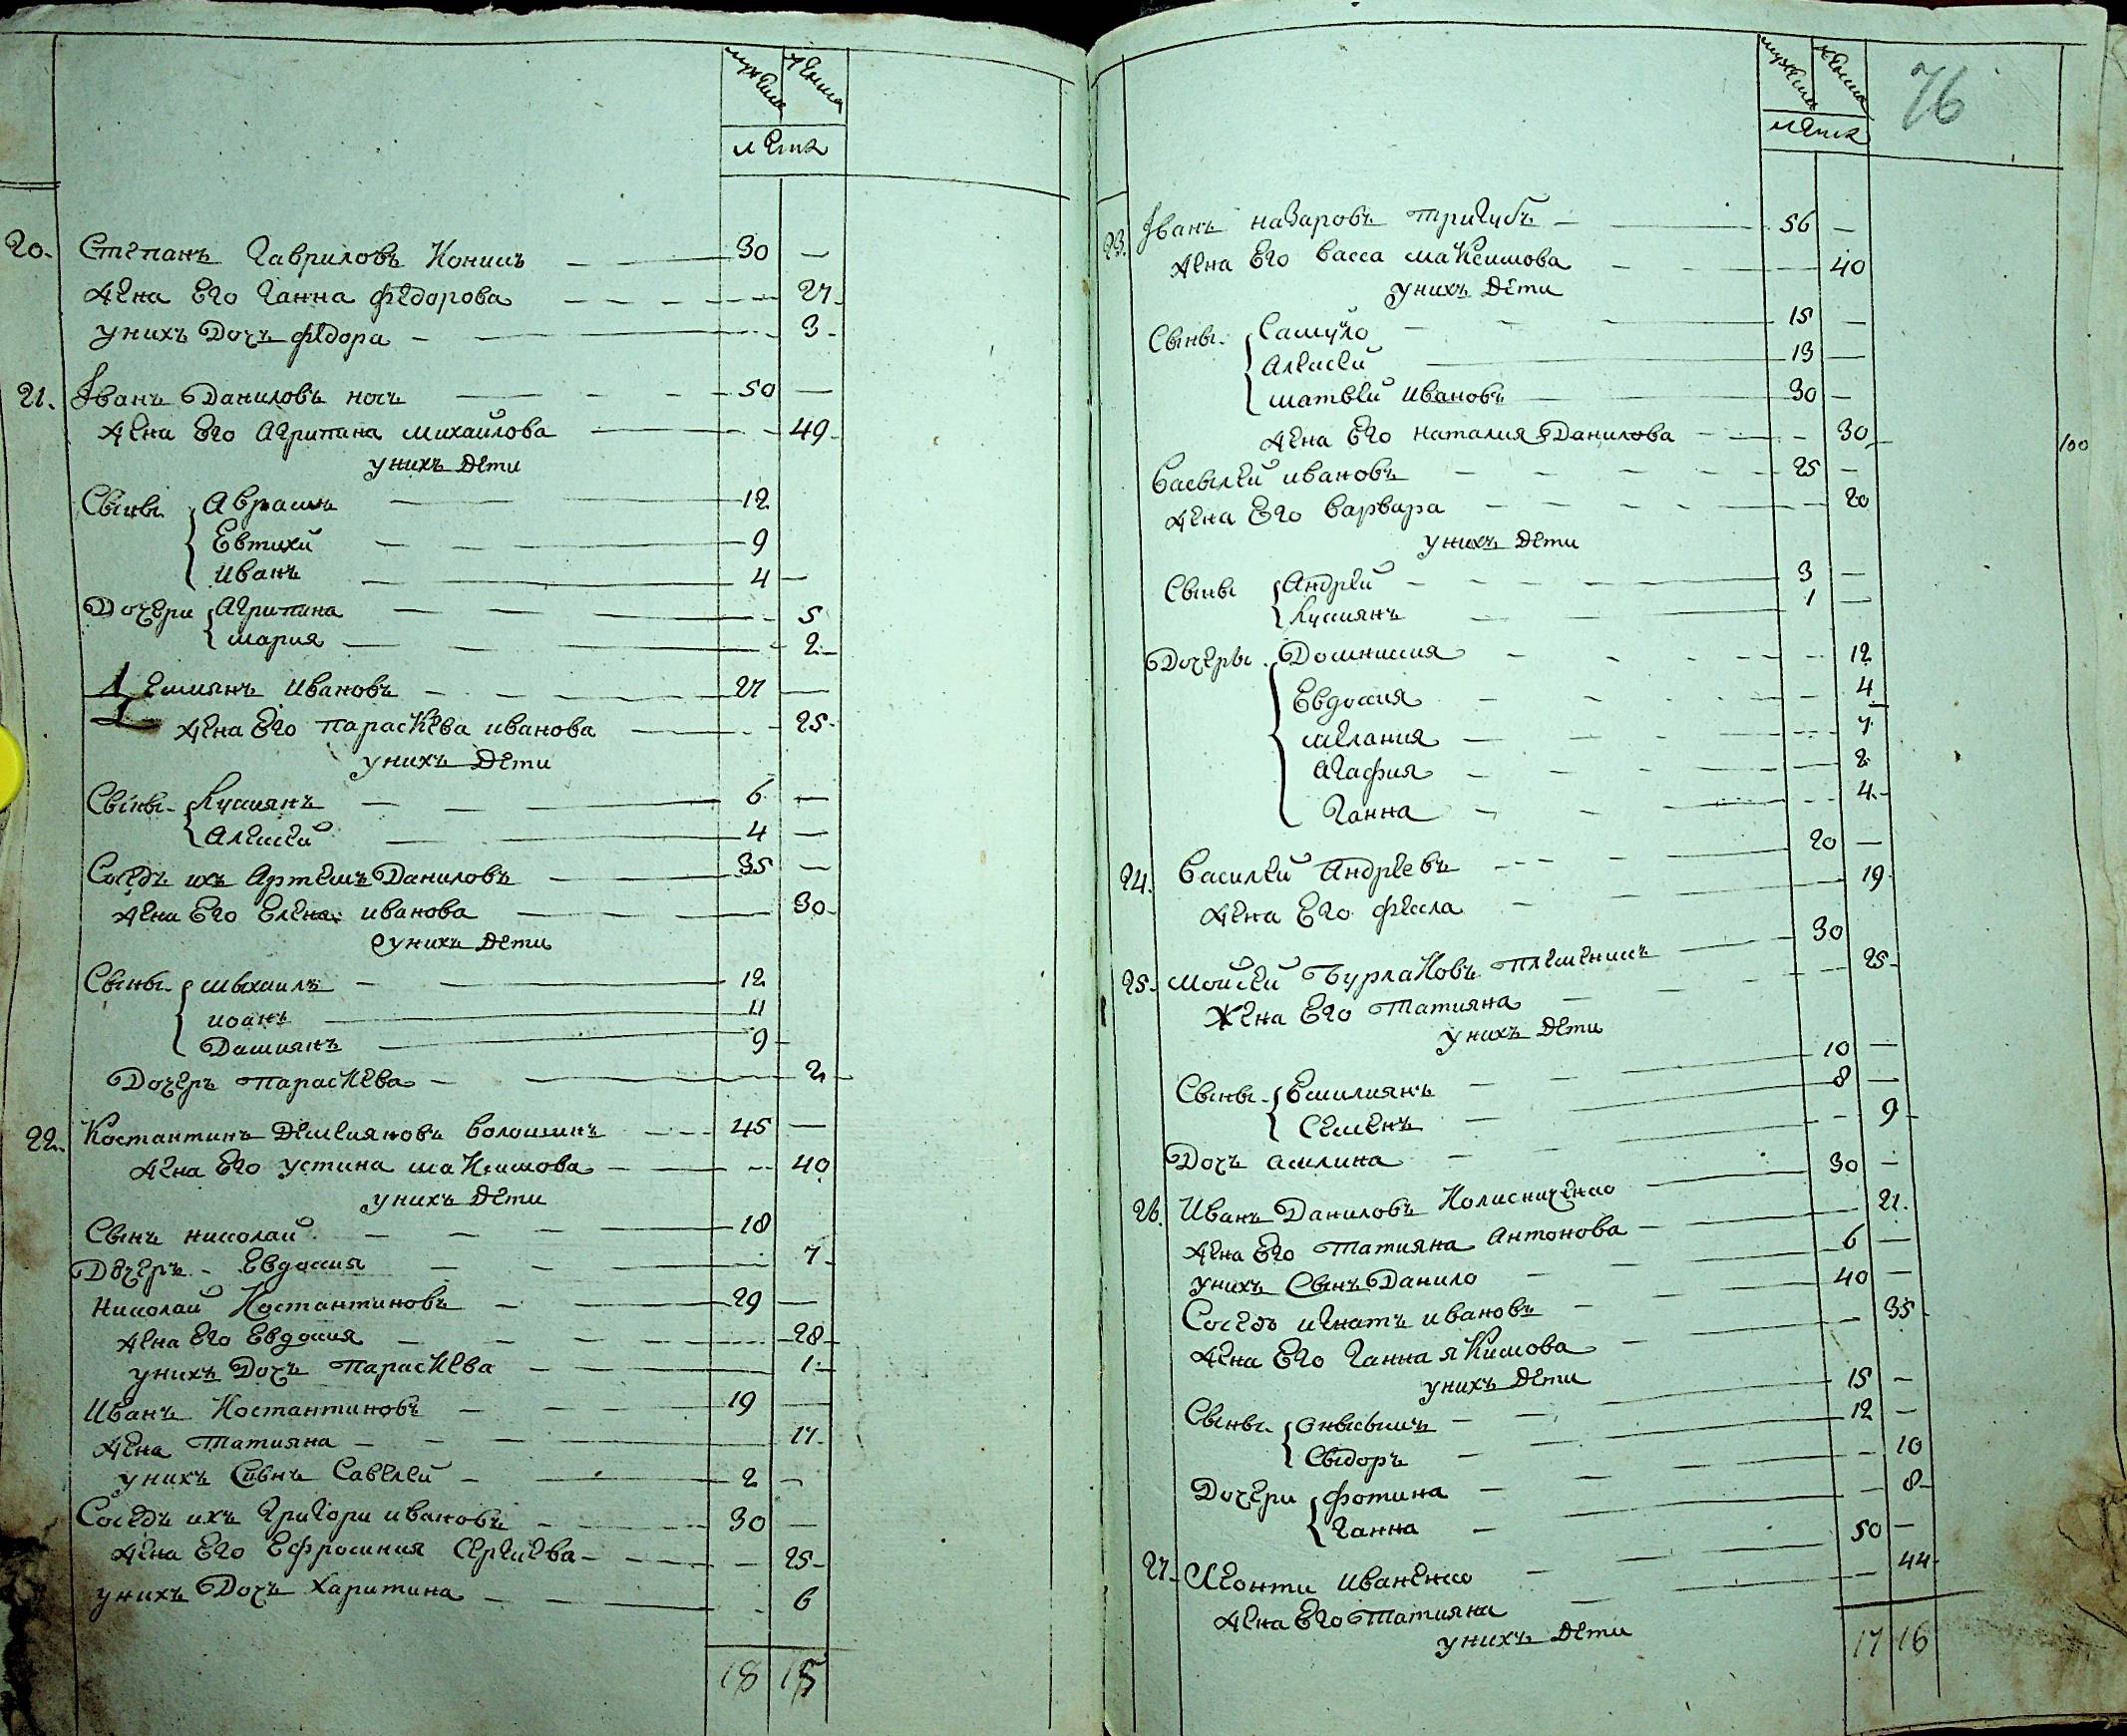 мужеска женска
лета
20. Степанъ Гавриловъ Кониць 30 —
жена Его Ганна федорова 27
унихъ Дочъ федора 3
21. Іванъ Даниловъ носъ 50 —
жена Его Агрипина михаилова 49
унихъ дети
Сыны Аврамъ 12
Евтихи 9
иванъ 4 —
Дочери Агрипина 5
мария 2
Демиянъ ивановъ 27 —
жена Его параскева иванова 25
унихъ Дети
Сыны Кусиянъ 6 —
Алексей 4 —
Соседъ ихъ Артемъ Даниловъ 35 —
жена Его Елена иванова 30
унихъ дети
Сыны мыхаилъ 12
иоанъ 11
Дамиянъ 9
Дочеръ параскева 2
22. Костантинъ Демеияновъ волошинъ 45 —
жена Его устина максимова 40
унихъ Дети
Сынъ николай 18
Дочеръ Евдокия 7
николай Костантиновъ 29 —
жена Его Евдокия 28
унихъ Дочъ параскева 1
Иванъ Костантиновъ 19 —
жена Татияна 17
унихъ Сынъ Савелей 2 —
Соседъ ихъ Григори ивановъ 30 —
жена Его Ефросиния Сергиева 25
унихъ Дочъ харитина 6
18 15
мужеска женска 76
лета
23. Іванъ назаровъ тригубъ 56 —
жена Его васса максимова 40
унихъ дети
Сыны Самуло 15 —
Алексей 13 —
матвей ивановъ 30 —
жена Его наталия Данилова 30
100
васылей ивановъ 25 —
жена Его варвара 20
унихъ дети
Сыны Андрей 3 —
Кусиянъ 1 —
Дочеры Домникия 12
Евдокия 4
мелания 7
агафия 2
Ганна 4
24. василей Андреевъ 20 —
жена Его фекла 19
25. мойсей Бурлаковъ племеникъ 30
жена Его татияна 25
унихъ дети
Сыны Емилиянъ 10 —
Семенъ 8 —
Дочъ акилина 9
26. Иванъ Даниловъ Колисниченко 30 —
жена Его татияна Антонова 21
унихъ Сынъ Данило 6 —
Соседъ игнатъ ивановъ 40 —
жена Его Ганна якимова 35
унихъ дети
Сыны Онысымъ 15 —
Сыдоръ 12 —
Дочери фотина 10
Ганна 8
27. Леонти иваненко 50 —
жена Его татияна 44
унихъ дети
17 16